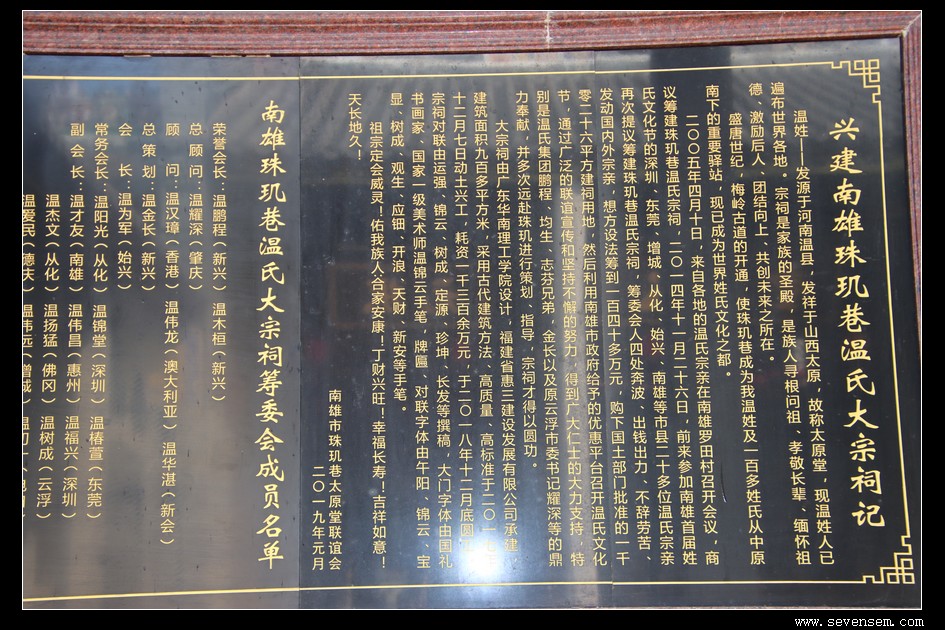 兴建南雄珠玑巷温氏大宗祠记
温姓——发源于河南温县，发祥于山西太原，故称太原堂，现温姓人已
遍布世界各地。宗祠是家族的圣殿，是族人寻根问祖、孝敬长辈、缅怀祖
德、激励后人、团结向上、共创未来之所在。
盛唐世纪，梅岭古道的开通，使珠玑巷成为我温姓及一百多姓氏从中原
南下的重要驿站，现已成为世界姓氏文化之都。
二〇〇五年四月十日，来自各地的温氏宗亲在南雄罗田村召开会议，商
议筹建珠玑巷温氏宗祠，二〇一四年十一月二十六日，前来参加南雄首届姓
氏文化节的深圳、东莞、增城、从化、始兴、南雄等市县二十多位温氏宗亲
再次提议筹建珠玑巷温氏宗祠，筹委会人四处奔波、出钱出力、不辞劳苦、
发动国内外宗亲，想方设法筹到一百四十多万元，购下国土部门批准的一千
零二十六平方建祠用地，然后利用南雄市政府给予的优惠平台召开温氏文化
节，通过广泛的联谊宣传和坚持不懈的努力，得到广大仁士的大力支持，特
别是温氏集团鹏程、均生、志芬兄弟，金长以及原云浮市委书记耀深等的鼎
力奉献，并多次远赴珠玑进行策划、指导，宗祠才得以圆功。
大宗祠由广东华南理工学院设计，福建省惠三建设发展有限公司承建，
建筑面积九百多平方米，采用古代建筑方法、高质量、高标准于二〇一
十二月七日动土兴工，耗资一千三百余万元，于二〇一八年十二月底圆
宗祠对联由运强、锦云、树成、定源、珍坤、长发等撰稿，大门字体由国礼
书画家、国家一级美术师温锦云手笔，牌匾、对联字体由午阳、锦云、宝
显、树成、观生、应钿、开浪、天财、新安等手笔。
祖宗定会威灵！佑我族人合家安康！丁财兴旺！幸福长寿！吉祥如意！
天长地久！
南雄市珠玑巷太原堂联谊会
二〇一九年元月
南雄珠玑巷温氏大宗祠筹委会成员名单
荣誉会长：温鹏程（新兴） 温木桓（新兴）
总顾问：温耀深（肇庆）
顾问：温汉璋（香港） 温伟龙（澳大利亚） 温华湛（新会）
总策划：温金长（新兴）
会长：温为军（始兴）
常务会长：温阳光（从化） 温锦堂（深圳） 温椿萱（东莞）
副会长：温才友（南雄） 温伟昌（惠州） 温福兴（深圳）
温杰文（从化） 温扬猛（佛冈） 温树成（云浮）
温爱民（德庆） 温伟远（增城）
www.sevensem.com